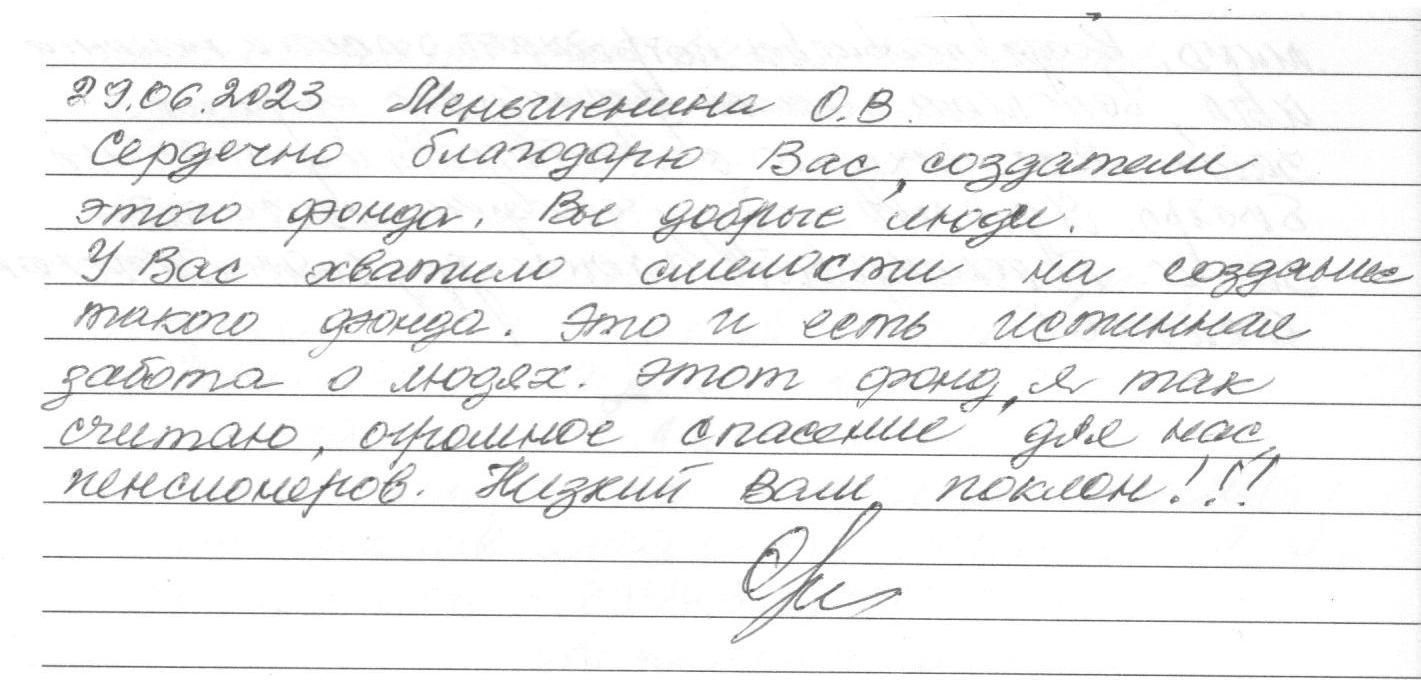 29.06.2023 Меньшенина О.В.
Сердечно благодарю Вас, создатели
этого фонда. Вы добрые люди.
У Вас хватило смелости на создание
такого фонда. Это и есть истинная
забота о людях. Этот фонд, я так
считаю, огромное спасение для нас,
пенсионеров. Низкий Вам поклон!!!